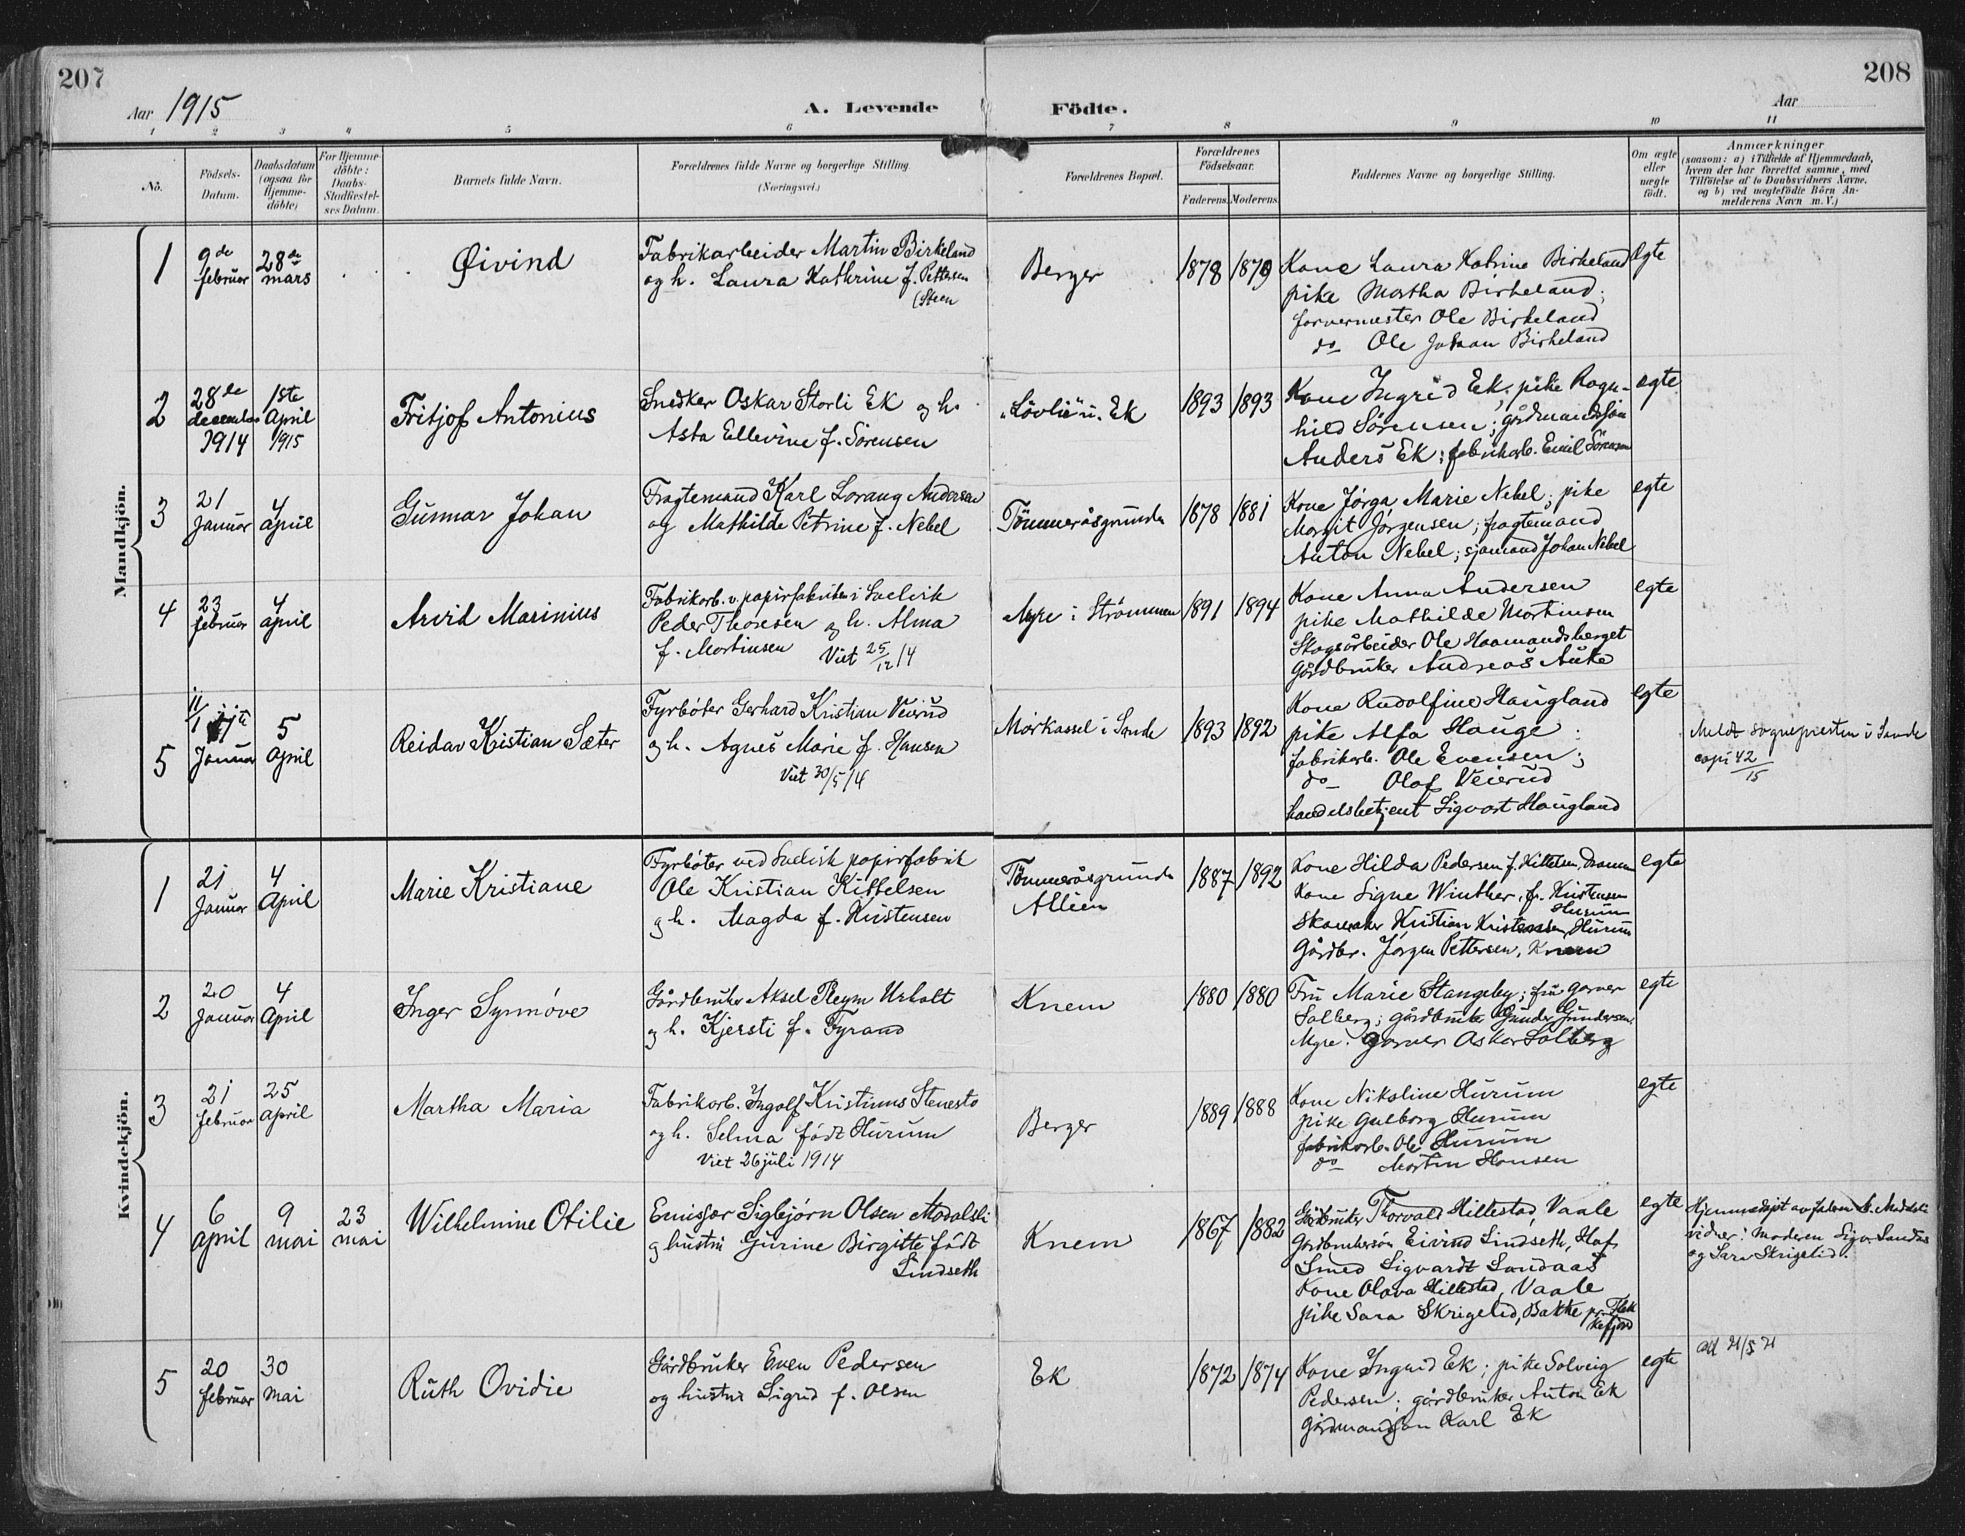 207
208
Aar 1915
A. Levende
Födte.
Aar
1 2 3 4 5 6 7 8 9 10 11
No.
Födsels-
Datum.
Daabsdatum
(ogsaa for
Hjemme-
döbte)
For Hjemme-
döbte:
Daabs-
Stadfæstel-
ses Datum.
Barnets fulde Navn.
Forældrenes fulde Navne og borgerlige Stilling
(Næringsvei.)
Forældrenes Bopæl.
Forældrenes
Födselsaar.
Faderens. Moderens.
Faddernes Navne og borgerlige Stilling.
Om ægte
eller
uægte
födt.
Anmærkninger
(saasom: a) i Tilfælde af Hjemmedaab,
hvem der har forrettet samme, med
Tilföielse af to Daabsvidners Navne.
og b) ved uægtefödte Börn An-
melderens Navn m. V.)
Mandkjön.
1
9de
februar
28de
mars
Øivind
Fabrikarbeider Martin Birkeland
og h. Laura Kathrine f. Pettersen
(Steen
Berger
1878 1879
Kone Laura Katrine Birkeland
pike Martha Birkeland;
farvermester Ole Birkeland
do Ole Johan Birkeland
egte
2
28de
december
1914
1ste
April
1915
Fritjof Antonius
Snedker Oskar Storli Ek og h.
Asta Ellevine f. Sørensen
"Løvlie" u. Ek
1893 1893
Kone Ingrid Ek; pike Ragn-
hild Sørensen; gårdmandssøn
Anders Ek; fabrikarb. Emil Sörensen
egte
3
21
Januar
4
April
Gunnar Johan
Fragtemand Karl Lorang Andersen
og Mathilde Petrine f. Nebel
Tömmeråsgrunda
1878 1881
Kone Jørga Marie Nebel; pike
Margit Jørgensen; fragtemand
Anton Nebel; sjømand Johan Nebel
egte
4
23
februar
4
april
Arvid Marinius
Fabrikarb. v. papirfabriken i Svelvik
Peder Thoresen og h. Alma
f. Martinsen Viet 25/12 14
Myre i Strömmen
1891 1894
Kone Anna Andersen
pike Mathilde Martinsen
Skogsarbeider Ole Haamandsberget
Gårdbruker Andreas Auke
egte
5
11/1
Januar
5
April
Reidar Kristian Sæter
Fyrbøter Gerhard Kristian Veierud
og h. Agnes Marie f. Hansen
Viet 30/5 14
Mørkassel i Sande
1893 1892
Kone Rudolfine Haugland
pike Alfa Hauge;
fabrikarb. Ole Evensen;
do Olaf Veierud
handelsbetjent Sigvart Haugland
egte
Meldt sognepresten i Sande
copi 42/15
Kvindekjön.
1
21
Januar
4
April
Marie Kristiane
Fyrbøter ved Svelvik papirfabrik
Ole Kristian Kittelsen
og h. Magda f. Kristensen
Tömmeråsgrunda
Allien
1887 1892
Kone Hilda Pedersen f. Kittelsen, Drammen
Kone Signe Winther, f. Kristensen
Hurum
Skomaker Kristian Kristensen, Hurum
Gårdbr. Jørgen Pettersen, Knem
egte
2
20
Januar
4
April
Inger Synnøve
Gårdbruker Aksel Regm Urholt
og h. Kjersti f. Fyrand
Knem
1880 1880
Fru Marie Stangeby; fru garver
Solberg; gårdbruker Gunder Gundersen
Myre. Garver Oskar Solberg
egte
3
21
februar
25
april
Martha Maria
Fabrikarb. Ingolf Kristinus Stenesto
og h. Selma født Hurum
Viet 26 juli 1914
Berger
1889 1888
Kone Nikoline Hurum
pike Gulborg Hurum
fabrikarb. Ole Hurum
do Martin Hansen
egte
4
6
april
9
mai
23
mai
Wilhelmine Otilie
Emissær Sigbjørn Olsen Modalsli
og hustru Gurine Birgitte født
Lindseth
Knem
1867 1882
Gårdbruker Thorvald Hillestad, Vaale
Gårdbrukersøn Eivind Lindseth, Hof
Smed Sigvardt Sandaas
Kone Olava Hillestad, Vaale
pike Sara Skrigelid, Bakke pr. Flek
kefjord
egte
Hjemmedøpt av faren
vidner: moderen Sandaas
og Sara Skrigelid.
5
20
februar
30
mai
Ruth Ovidie
Gårdbruker Even Pedersen
og hustru Sigrid f. Olsen
Ek
1872 1874
Kone Ingrid Ek; pike Solveig
Pedersen; gårdbruker Anton Ek
Gårdmandssøn Karl Ek
egte
att 21/5 21